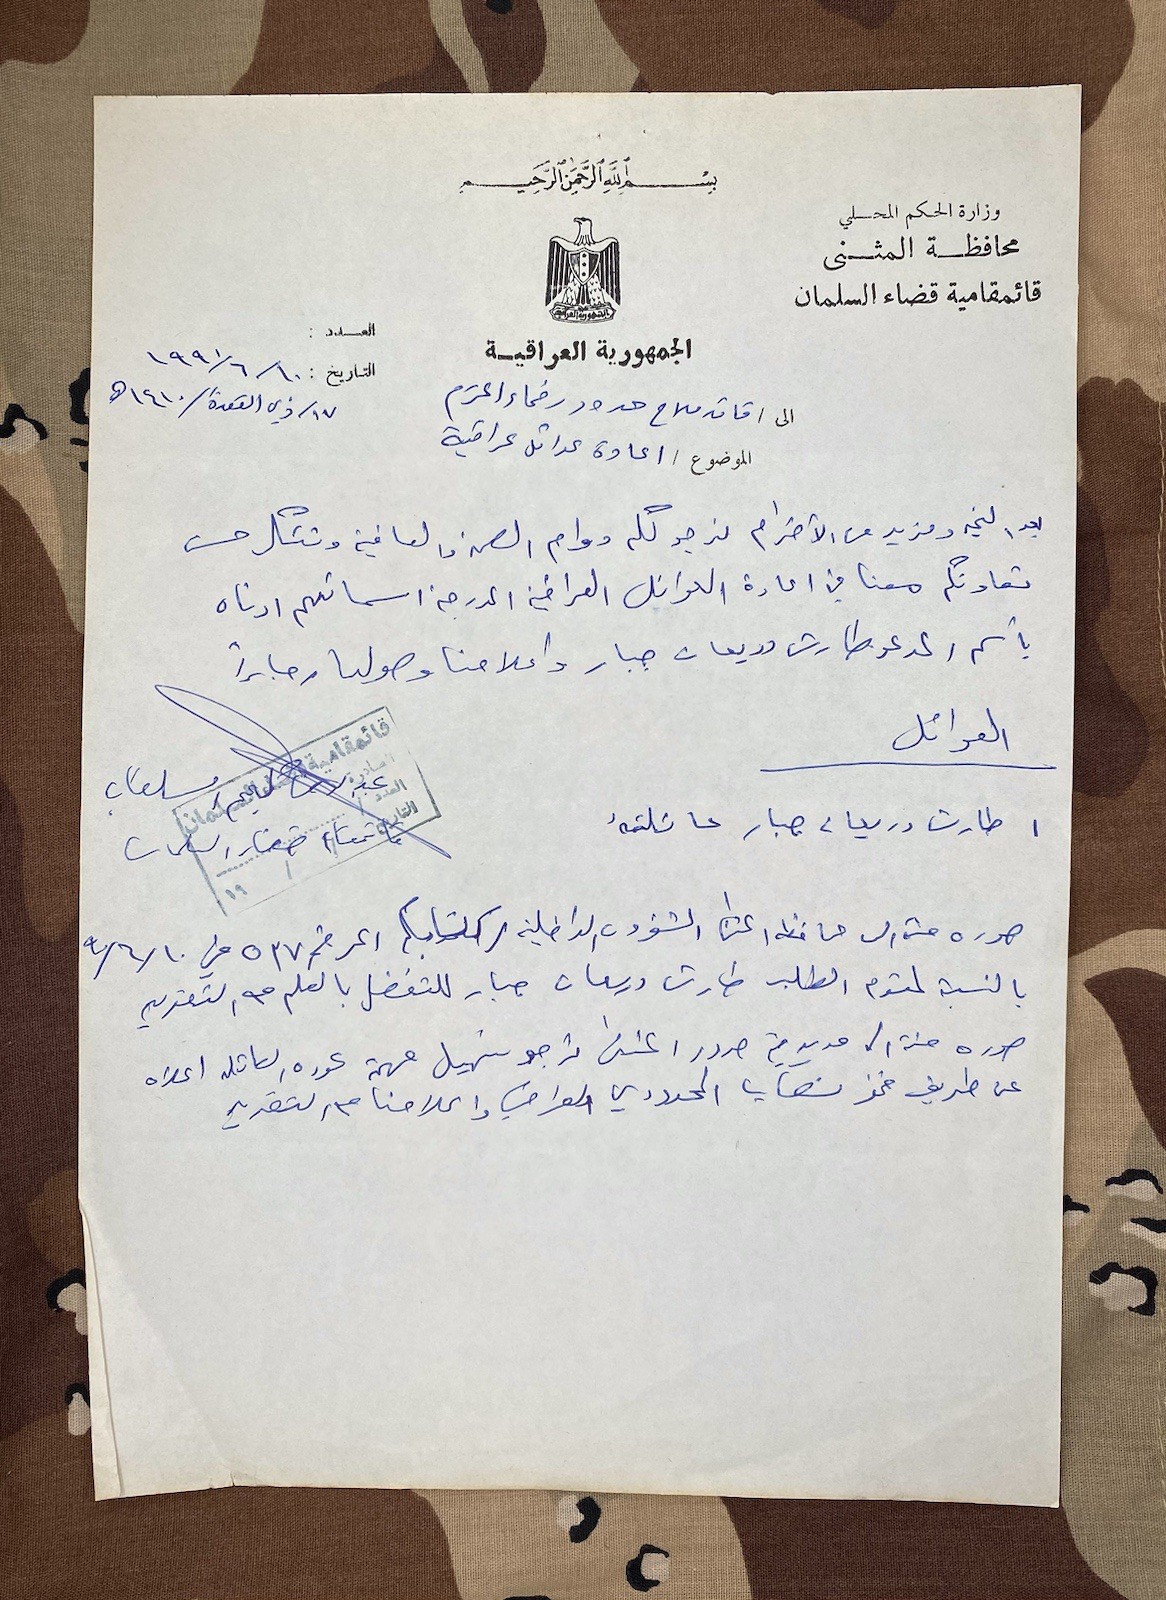 بسم الله الرحمن الرحيم
وزارة الحكم المحلي
محافظة المثنى
قائمقامية قضاء السلمان
الجمهورية العراقية
العدد :
التاريخ : ١٩٩١/٦/١٠
١٧/ذي القعدة/١٤١٠هـ
الى / قائد سلاح حدود رفحاء المحترم
الموضوع / اعادة عوائل عراقية
بعد التحية ومزيد من الأحترام نرجو لكم دوام الصحة والعافية ونشكر حسن
تعاونكم معنا في اعادة العوائل العراقية المدرجة اسمائهم ادناه
بأسم المدعو طارش دريعان جبار واعلامنا وصولها رجاءاً
العوائل
١ طارش دريعان جبار عائلته
قائمقامية قضاء السلمان
العدد
التاريخ
١٩
صوره منه الى محافظة المثنى الشؤون الداخلية كتابكم المرقم ٥٣٧ في ٩١/٦/١٠
بالنسبة لمقدم الطلب طارش دريعان جبار للتفضل بالعلم مع التقدير
صوره منه الى مديرية حدود المثنى نرجو تسهيل مهمة عوده العائله اعلاه
عن طريق مخفر نصاب الحدودي العراقي واعلامنا مع التقدير